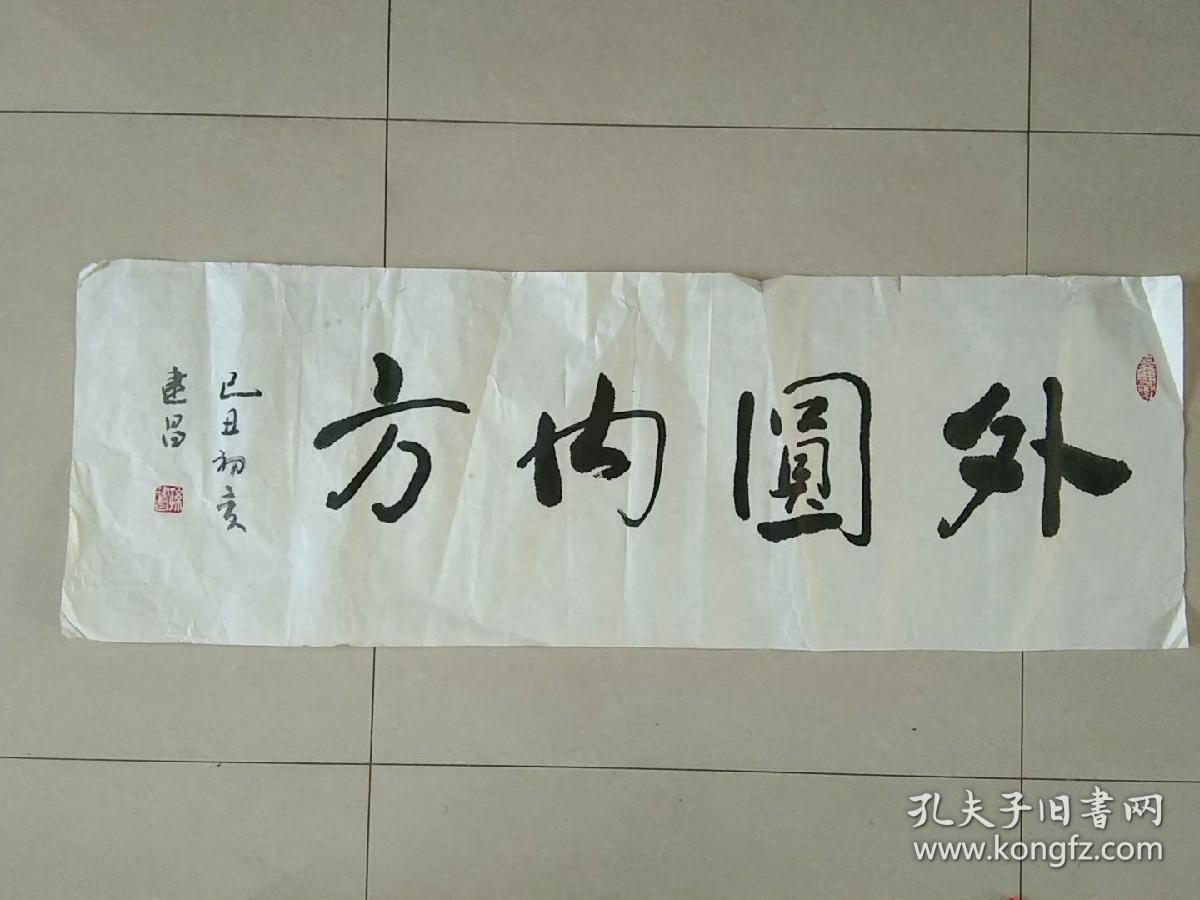 外圓内方
己丑初夏
建昌
孔夫子旧书网
www.kongfz.com